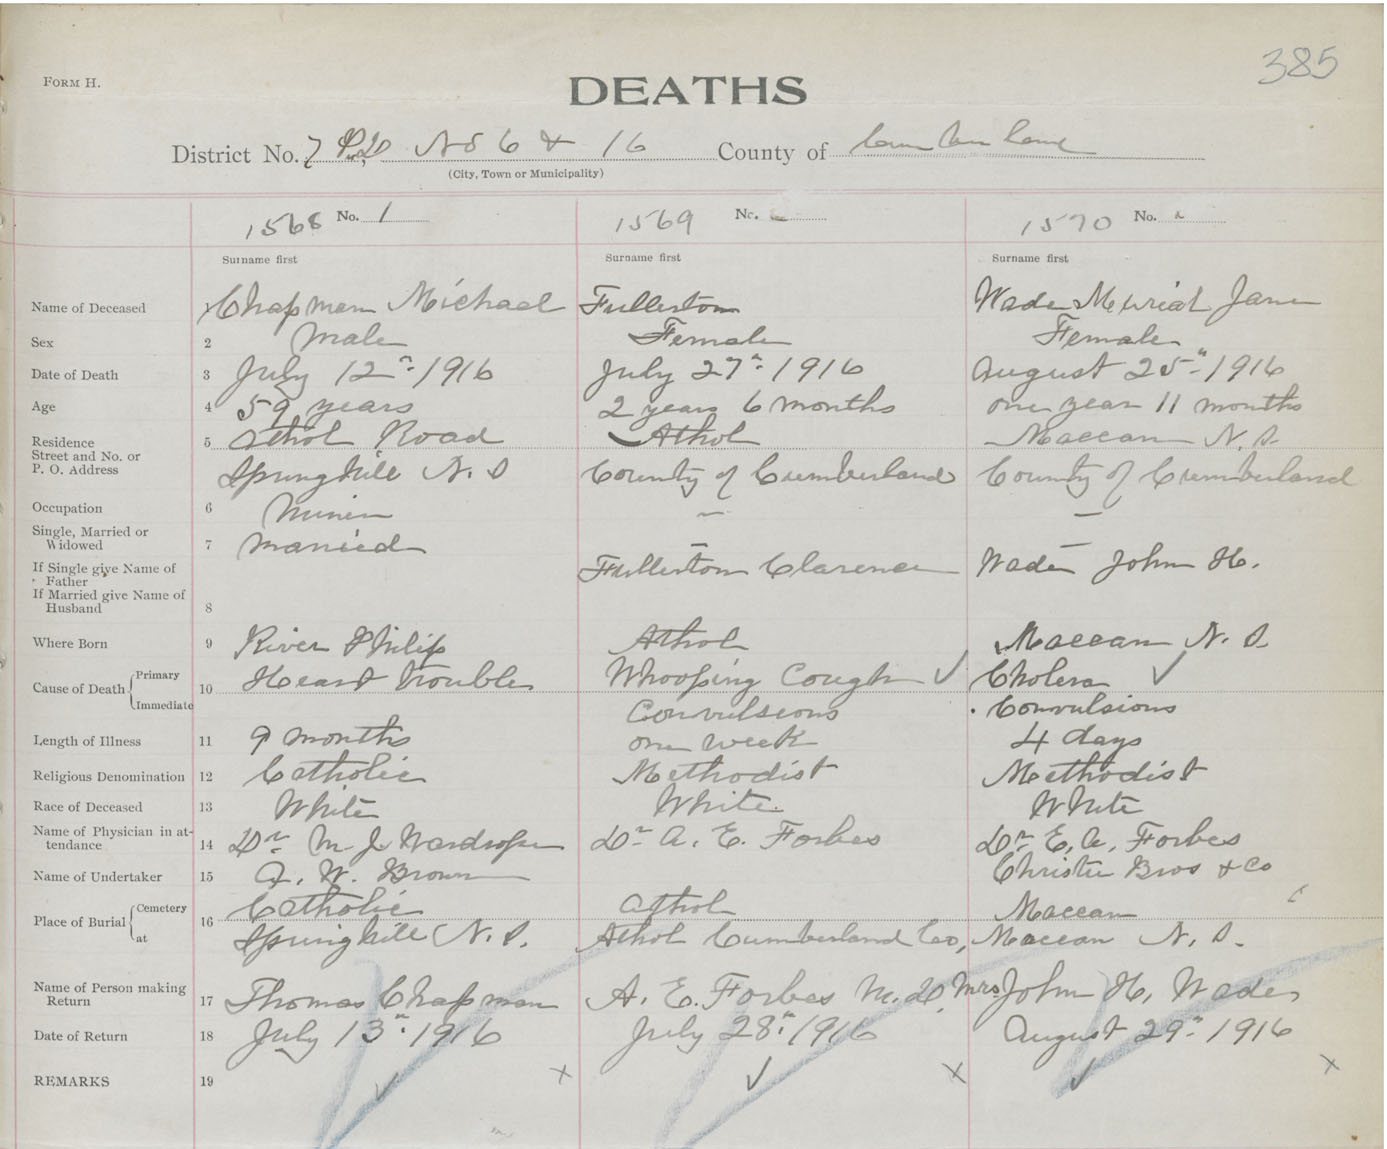 385
FORM H.
DEATHS
District No. 7 No 6 & 16 County of Cumberland
(City, Town or Municipality)
1568 No. 1 1569 No. 1570 No.
Surname first Surname first Surname first
Name of Deceased 1 Chapman Michael Fullerton Wade Meuriel Jane
Sex 2 Male Female Female
Date of Death 3 July 12th 1916 July 27th 1916 August 25th 1916
Age 4 59 years 2 years 6 months one year 11 months
Residence 5 Athol Road Athol Maccan N.S
Street and No. or
P. O. Address Springhill N.S County of Cumberland County of Cumberland
Occupation 6 Miner — —
Single, Married or
Widowed 7 Married — —
If Single give Name of
Father Fullerton Clarence Wade John H.
If Married give Name of
Husband 8
Where Born 9 River Philip Athol Maccan N.S
Cause of Death Primary 10 Heart Trouble Whooping Cough ✓ Cholera ✓
Immediate Convulsions Convulsions
Length of Illness 11 9 months one week 4 days
Religious Denomination 12 Catholic Methodist Methodist
Race of Deceased 13 White White White
Name of Physician in at-
tendance 14 Dr. M. J. Wardrope Dr A. E. Forbes Dr E. A. Forbes
Name of Undertaker 15 A. W. Brown Christie Bros & Co
Place of Burial Cemetery 16 Catholic Athol Maccan
at Springhill N.S. Athol Cumberland Co, Maccan N.S.
Name of Person making
Return 17 Thomas Chapman A. E. Forbes M.D. Mrs John H. Wade
Date of Return 18 July 13th 1916 July 28th 1916 August 29th 1916
REMARKS 19 ✓ x ✓ x ✓ x